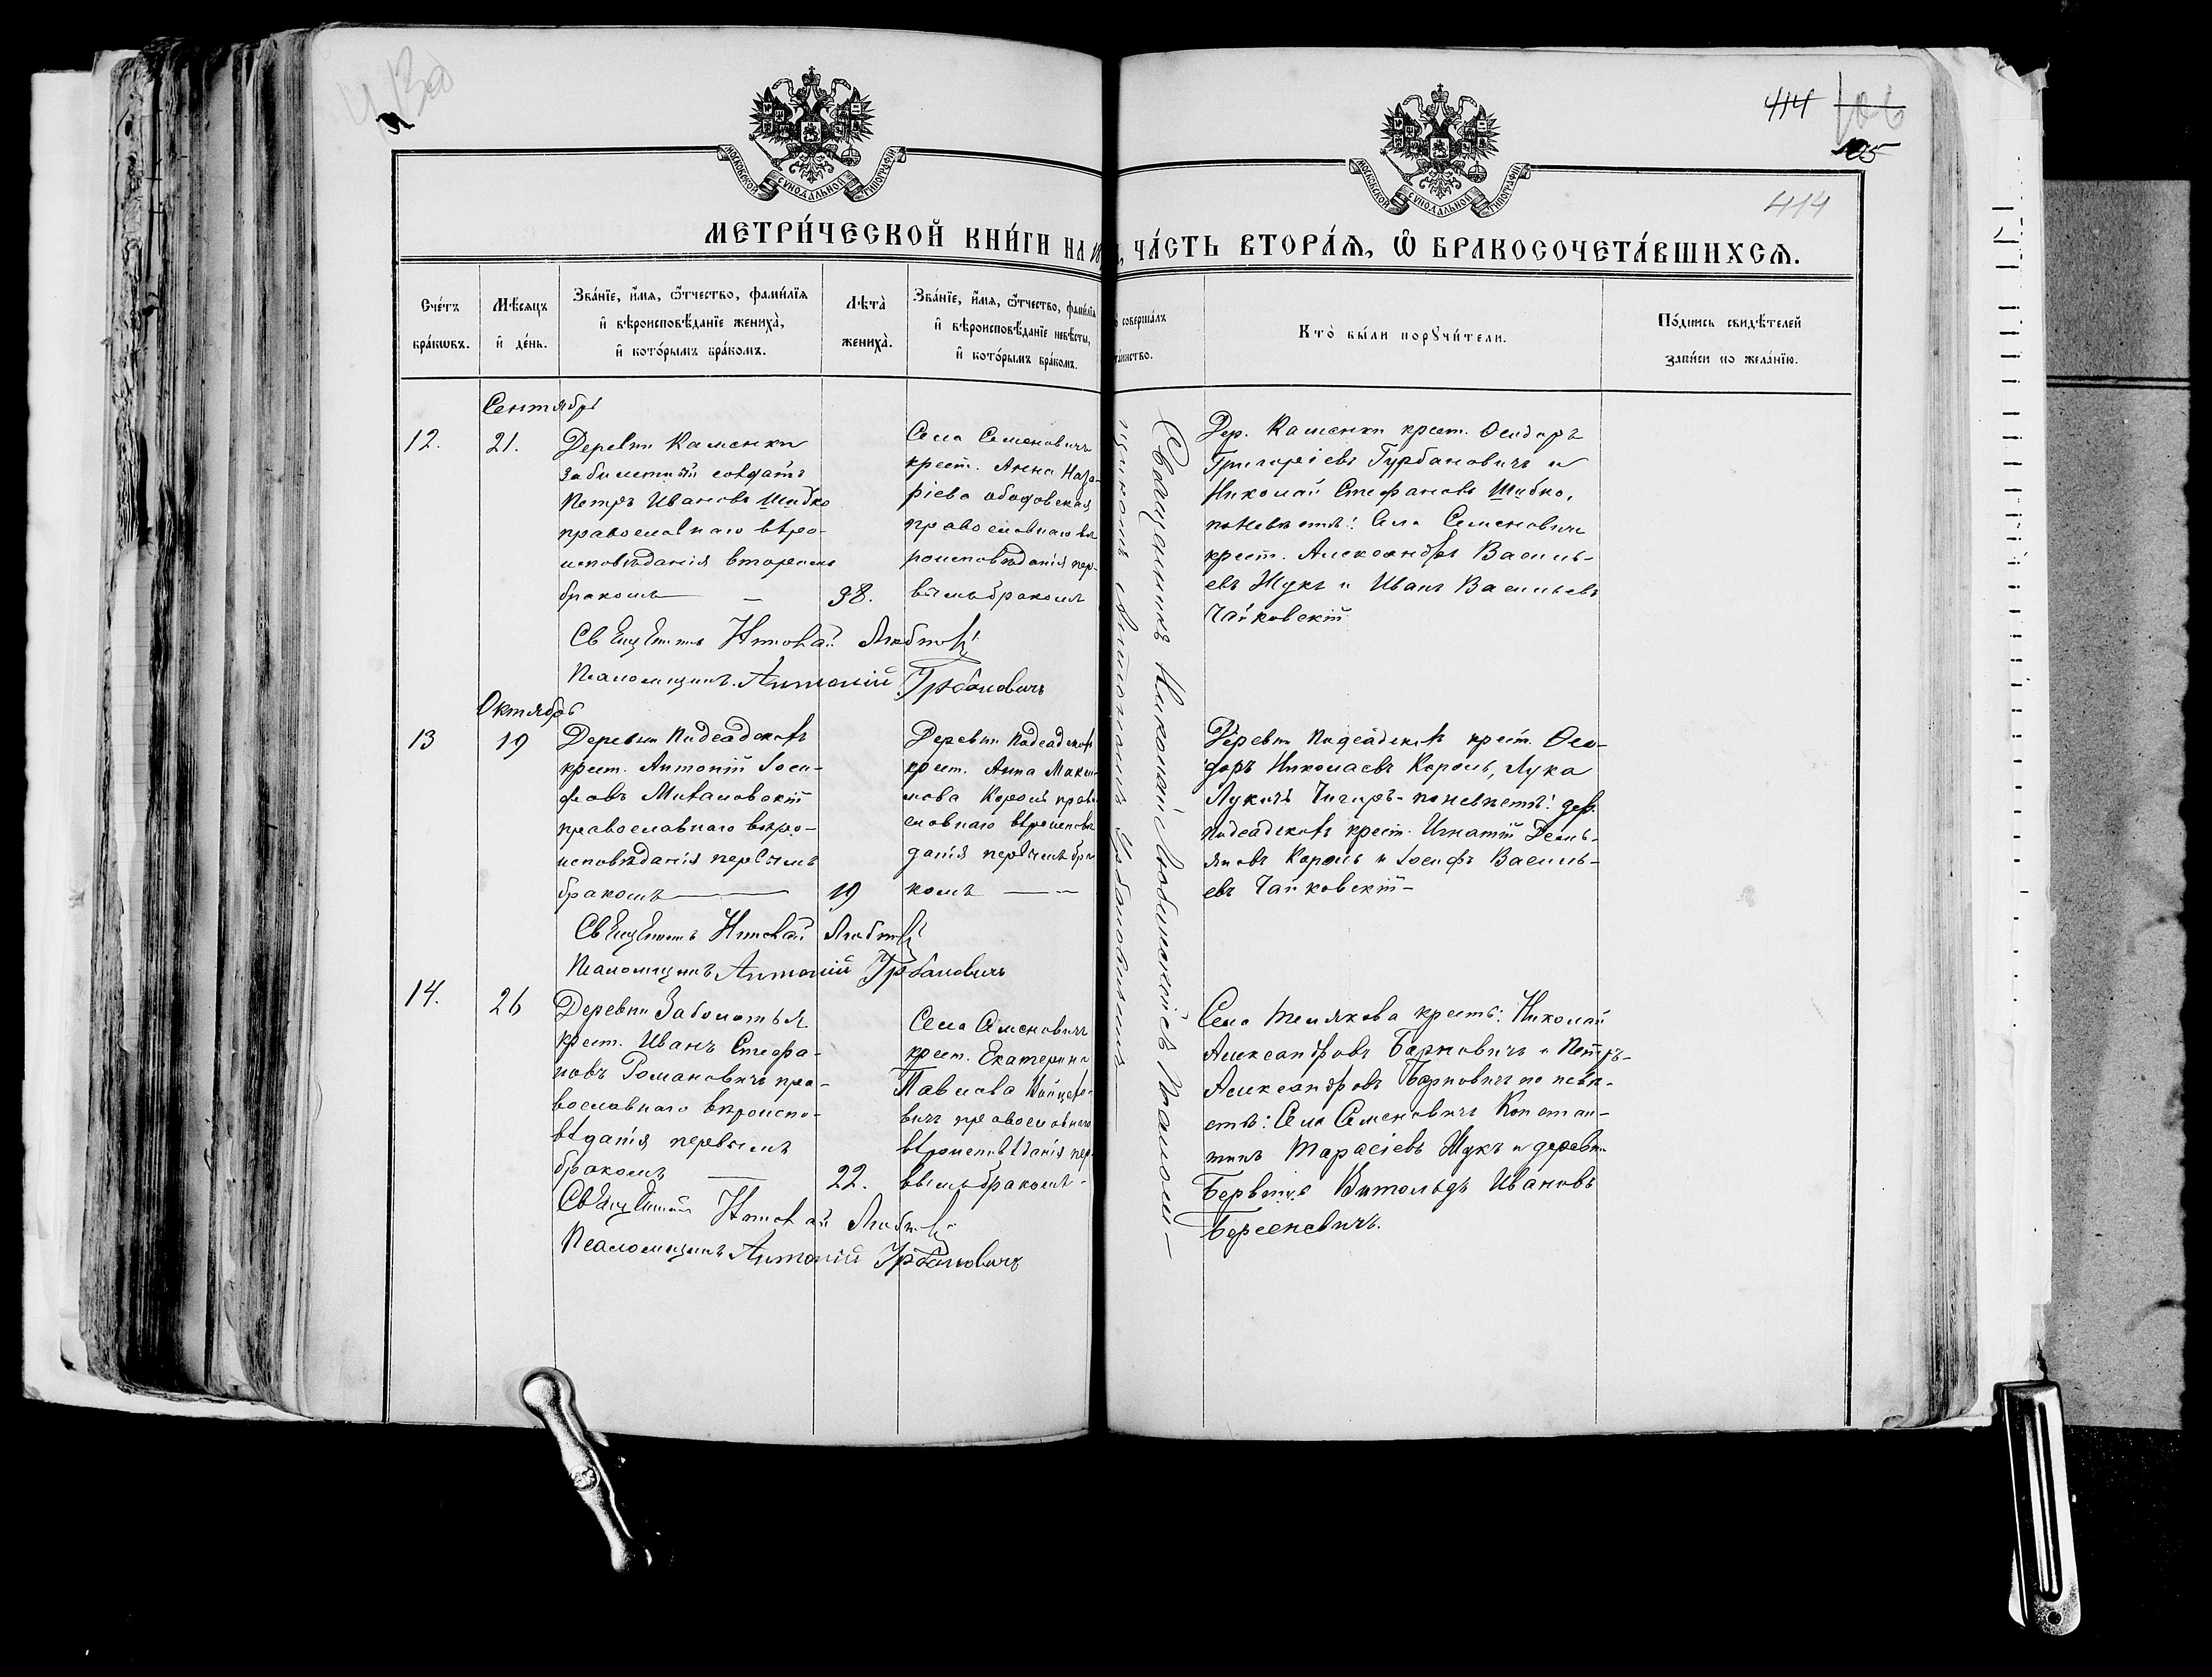 414
105
414
МОСКОВСКОЙ СѴНОДАЛЬНОЙ ТИПОГРАФІИ
МОСКОВСКОЙ СѴНОДАЛЬНОЙ ТИПОГРАФІИ
МЕТРИ́ЧЕСКОЙ КНИ́ГИ НА
ЧА́СТЬ ВТОРА́Ѧ, Ѽ БРАКОСОЧЕТА́ВШИХСѦ.
Сче́тъ бра́кѡвъ.
Мѣ́сѧцъ и҆ де́нь.
Зва́нїе, и҆́мѧ, ѻ҆́тчество, фами́лїѧ
и҆ вѣроисповѣ́данїе жениха̀,
и҆ кото́рымъ бра́комъ.
Лѣта̀ жениха̀.
Зва́нїе, и҆́мѧ, ѻ҆́тчество, фами́лїѧ
и҆ вѣроисповѣ́данїе невѣ́сты,
и҆ кото́рымъ бра́комъ.
соверша́лъ
та́инство.
Кто̀ бы́ли порꙋчи́тели.
По́дпись свидѣ́телей
за́писи по жела́нїю.
Сентябрь
12.
21.
Деревни Каменки
забилетный солдатъ
Петръ Ивановъ Шибко
православнаго вѣро-
исповѣданія вторымъ
бракомъ
38.
Села Семеновичъ
крест. Анна Наза-
рiева
православнаго вѣ
роисповѣданія пер-
вымъ бракомъ
Дер. Каменки крест. Ѳеодоръ
Григорiевъ Гурбановичъ и
Николай Стефановъ Шибко,
по невѣстѣ: Села Семеновичъ
крест. Александръ Василь-
евъ Жукъ и Иванъ Васильевъ
Чайковскій
Священникъ Николай
Псаломщикъ Антоній Урбановичъ
Октябрь
13
19
Деревни Подсадковъ
крест. Антоній Іоси-
фовъ
православнаго вѣро-
исповѣданія первымъ
бракомъ
19
Деревни Подсадковъ
крест. Анна Макси-
мова Король право
славнаго вѣроисповѣ
данія первымъ бра
комъ
Деревни Подсадковъ крест. Ѳео-
доръ Николаевъ Король, Лука
Лукичъ Чигиръ - по невѣстѣ: дер.
Подсадковъ крест. Игнатій Демь-
яновъ Король и Іосифъ Василь-
евъ Чайковскій -
Священникъ Николай
Псаломщикъ Антоній Урбановичъ
14.
26
Деревни Заболотья
крест. Иванъ Стефа-
новъ Романовичъ пра-
вославнаго вѣроиспо-
вѣданія первымъ
бракомъ
22.
Села Семеновичъ
крест. Екатерина
Павлова Войцехо-
вичъ православнаго
вѣроисповѣданія пер-
вымъ бракомъ -
Села Телякова крест: Николай
Александровъ Барковичъ и Петръ
Александровъ Барковичъ по невѣ-
стѣ: Села Семеновичъ Констан-
тинъ Тарасіевъ Жукъ и деревни
Витольдъ Ивановъ
Священникъ Николай
Псаломщикъ Антоній Урбановичъ
Священникъ Николай съ Псалом-
щикомъ Антоніемъ Урбановичемъ